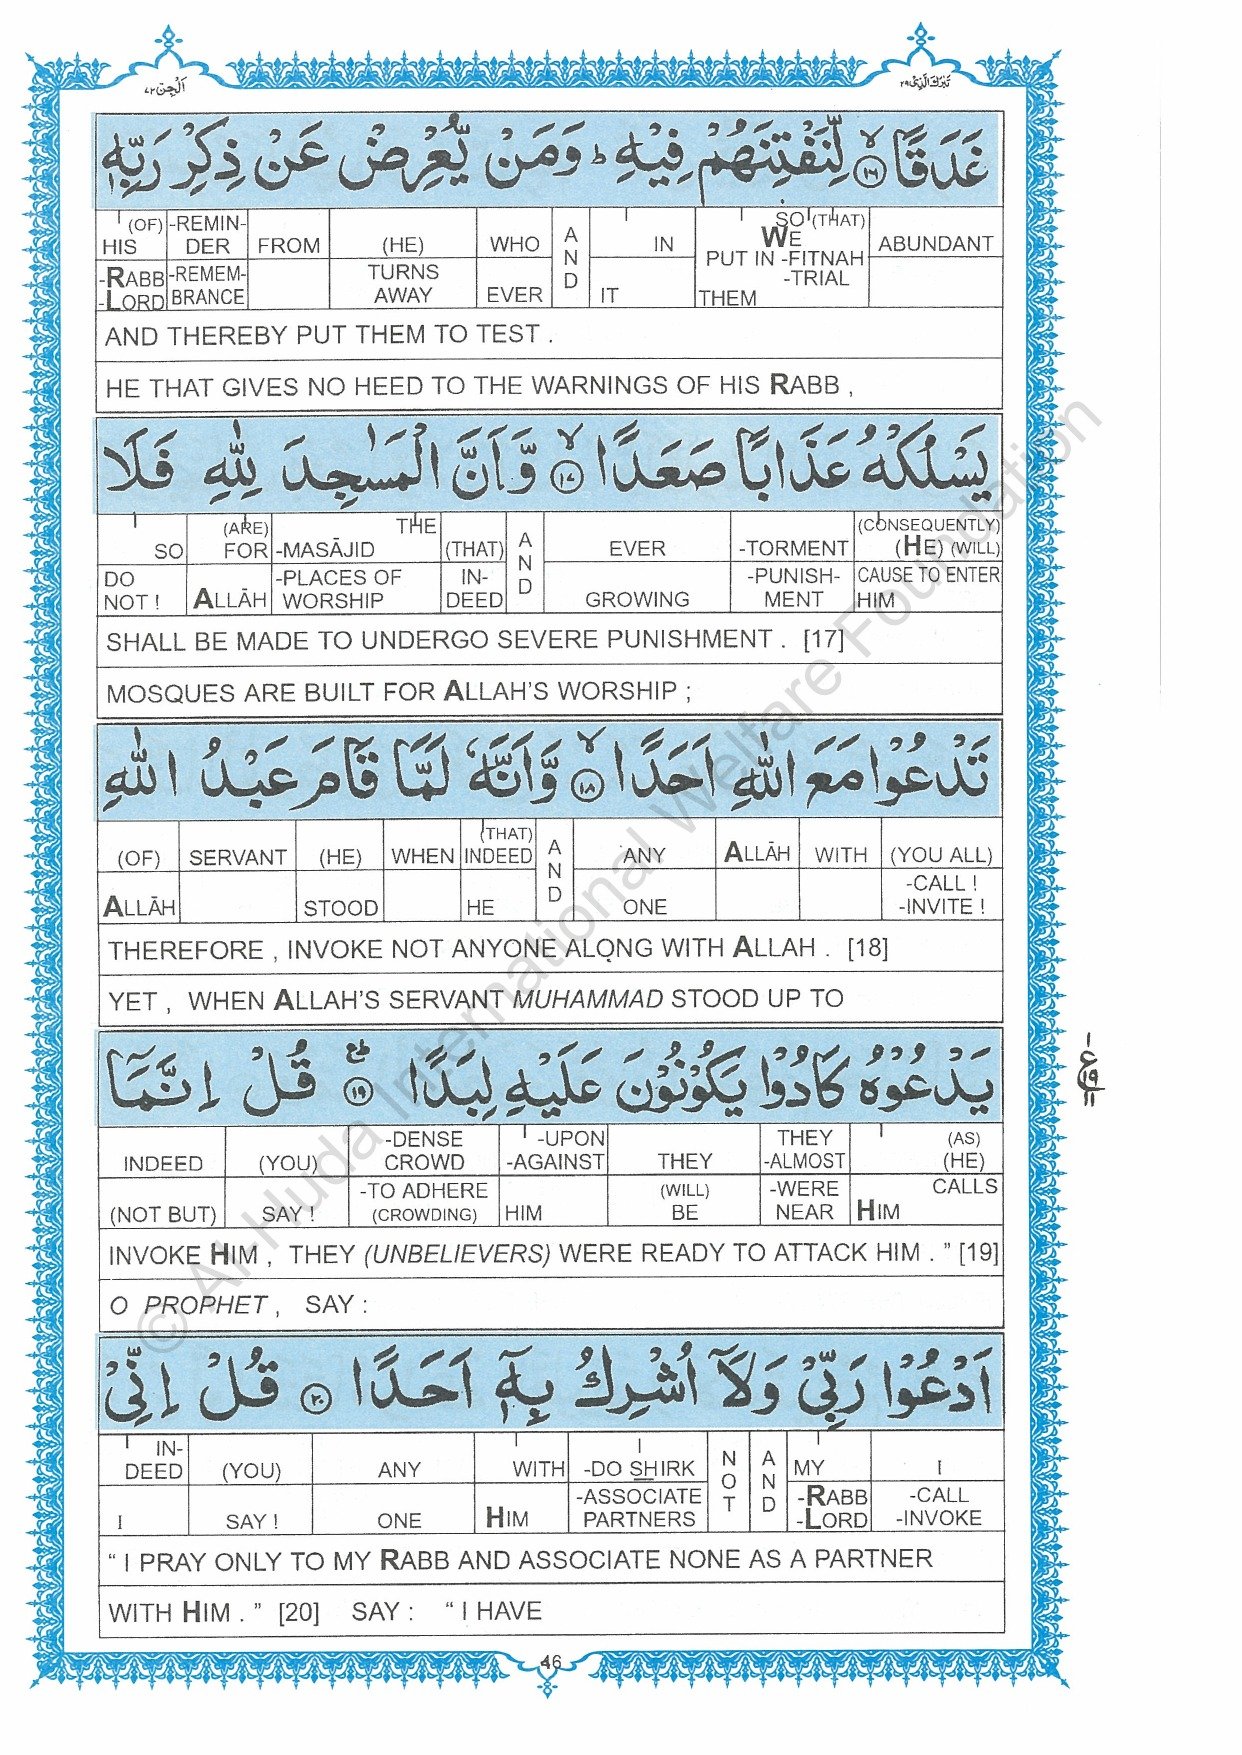 اَلْجِنّ۷۲
تَبٰرَكَ الَّذِیْ۲۹
غَدَقًا ۙ۱۶ لِّنَفْتِنَهُمْ فِيْهِ ؕ وَمَنْ يُّعْرِضْ عَنْ ذِكْرِ رَبِّهٖ
(OF) -REMIN- SO (THAT)
HIS DER FROM (HE) WHO AND IN WE ABUNDANT
PUT IN -FITNAH
-RABB -REMEM- TURNS -TRIAL
-LORD BRANCE AWAY EVER IT THEM
AND THEREBY PUT THEM TO TEST .
HE THAT GIVES NO HEED TO THE WARNINGS OF HIS RABB ,
يَسْلُكْهُ عَذَابًا صَعَدًا ۙ۱۷ وَّاَنَّ الْمَسٰجِدَ لِلّٰهِ فَلَا
(ARE) THE (CONSEQUENTLY)
SO FOR -MASĀJID (THAT) AND EVER -TORMENT (HE) (WILL)
DO -PLACES OF IN- -PUNISH- CAUSE TO ENTER
NOT ! ALLĀH WORSHIP DEED GROWING MENT HIM
SHALL BE MADE TO UNDERGO SEVERE PUNISHMENT . [17]
MOSQUES ARE BUILT FOR ALLAH'S WORSHIP ;
تَدْعُوْا مَعَ اللّٰهِ اَحَدًا ۙ۱۸ وَّاَنَّهٗ لَمَّا قَامَ عَبْدُ اللّٰهِ
(THAT)
(OF) SERVANT (HE) WHEN INDEED AND ANY ALLĀH WITH (YOU ALL)
-CALL !
ALLĀH STOOD HE ONE -INVITE !
THEREFORE , INVOKE NOT ANYONE ALONG WITH ALLAH . [18]
YET , WHEN ALLAH'S SERVANT MUHAMMAD STOOD UP TO
يَدْعُوْهُ كَادُوْا يَكُوْنُوْنَ عَلَيْهِ لِبَدًا ؕ۱۹ قُلْ اِنَّمَآ
-DENSE -UPON THEY (AS)
INDEED (YOU) CROWD -AGAINST THEY -ALMOST (HE)
-TO ADHERE (WILL) -WERE CALLS
(NOT BUT) SAY ! (CROWDING) HIM BE NEAR HIM
INVOKE HIM , THEY (UNBELIEVERS) WERE READY TO ATTACK HIM . ” [19]
O PROPHET , SAY :
ع
۱
۱۹
۱۱
اَدْعُوْا رَبِّيْ وَلَآ اُشْرِكُ بِهٖٓ اَحَدًا ۲۰ قُلْ اِنِّيْ
IN- I
DEED (YOU) ANY WITH -DO SHIRK NOT AND MY I
-ASSOCIATE -RABB -CALL
I SAY ! ONE HIM PARTNERS -LORD -INVOKE
“ I PRAY ONLY TO MY RABB AND ASSOCIATE NONE AS A PARTNER
WITH HIM . ” [20] SAY : “ I HAVE
46
© Al-Huda International Welfare Foundation